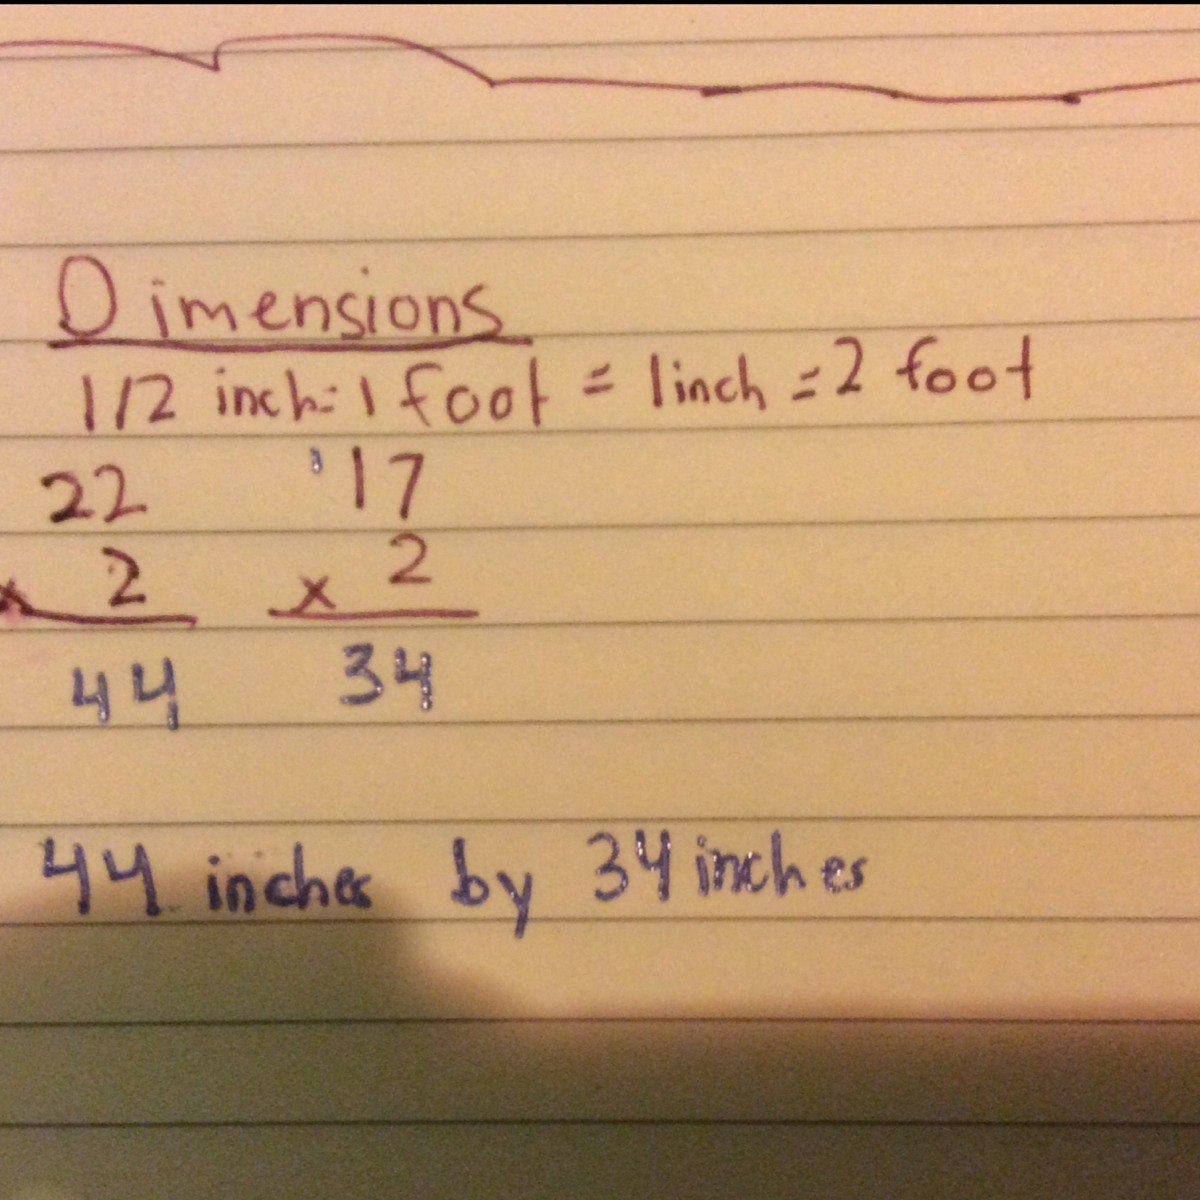 Dimensions
1/2 inch = 1 foot = 1 inch = 2 foot
22 17
x 2 x 2
44 34
44 inches by 34 inches